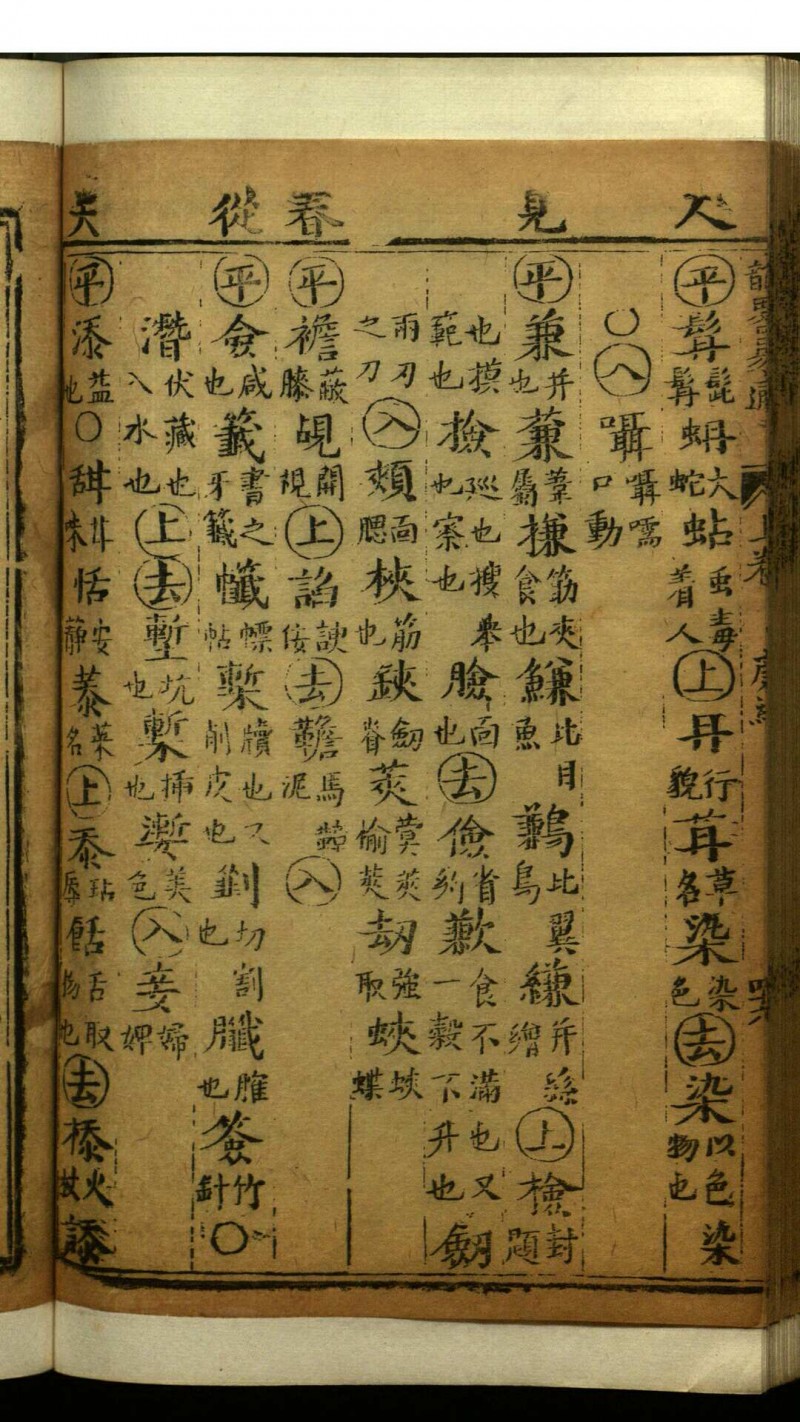 人　見　春　從　天
㊤平髯髭髯蚺大蛇蛄虫毒着人上冄行貌苒草名染染色去染以色物也染
○入囁囁嚅口動
平兼并也蒹葦屬㨂筯夾食也鰜比目魚鶼比翼鳥縑并絲繒上檢封題
也摸範也撿巡也搜也察也臉面也去儉省約歉食不滿也又一穀不升也劒
兩刃之刀入頰面腮梜筯也鋏劒脊莢蓂莢榆莢刧強取蛺蛺蝶
平襜蔽膝覘開視上諂諛佞去韂馬韂泥入
平僉咸也籖書之牙籖幟幖帖槧牘也又削皮也剑切割也臘臛也簽竹針○
潛伏藏也入水也上去塹坑也槧插也漸美色入妾婦婢
平添益也○甜甘恬安靜菾菜名上忝玷辱餂舌取物也去栝火杖